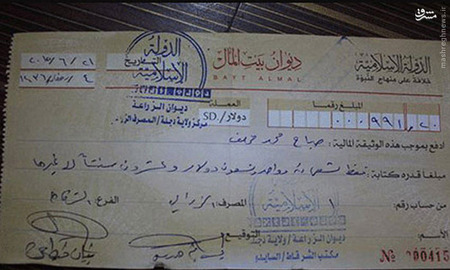 مشرق
mashreghnews.ir
الدولة الإسلامية
خلافة على منهاج النبوة
ديوان بيت المال
BAYT ALMAL
الدولة الإسلامية
ديوان الزراعة
مركز ولاية دجلة / المصرف الزراعي
التاريخ
٢١ / ٦ /
٤ / رمضان /
المبلغ رقما
٠٠٠٩٩١,٢٠
العملة
دولار / SD.
ادفع بموجب هذه الوثيقة المالية : صباح محمد
مبلغا قدره كتابة : فقط تسعمائة وواحد وتسعون دولار وعشرون سنتاً لا غيرها
من حساب رقم : ١
المصرف : الزراعي
الفرع : الشرقاط
الأسم :
التوقيع
الدولة الإسلامية
ديوان الزراعة / ولاية دجلة
مكتب الشرقاط / السايلو
Nº 000415